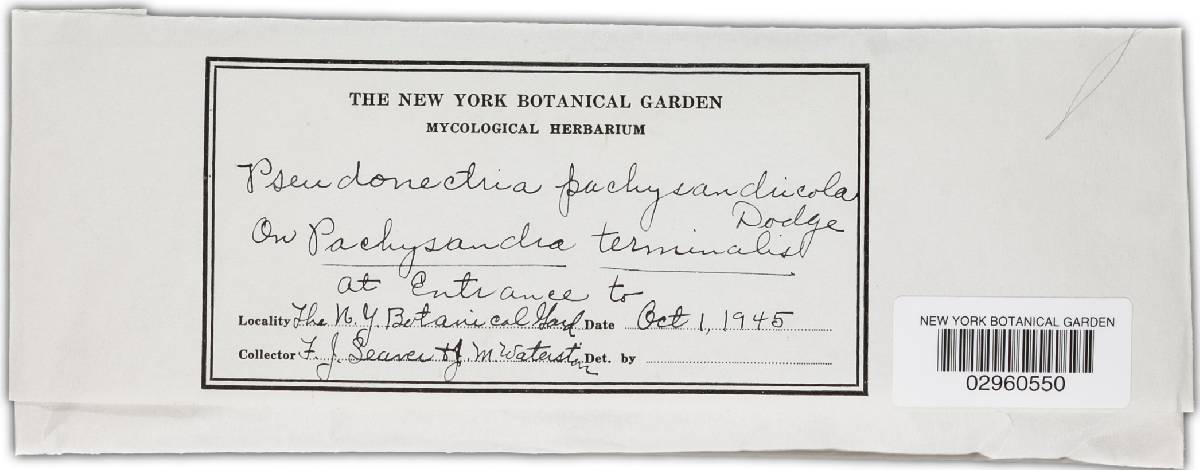 THE NEW YORK BOTANICAL GARDEN
MYCOLOGICAL HERBARIUM
Pseudonectria pachysandricola
Dodge
On Pachysandra terminalis
at Entrance to
Locality The N.Y. Botanical Gard Date Oct 1, 1945
Collector F. J. Seaver & J. M Waterston Det. by
NEW YORK BOTANICAL GARDEN
02960550